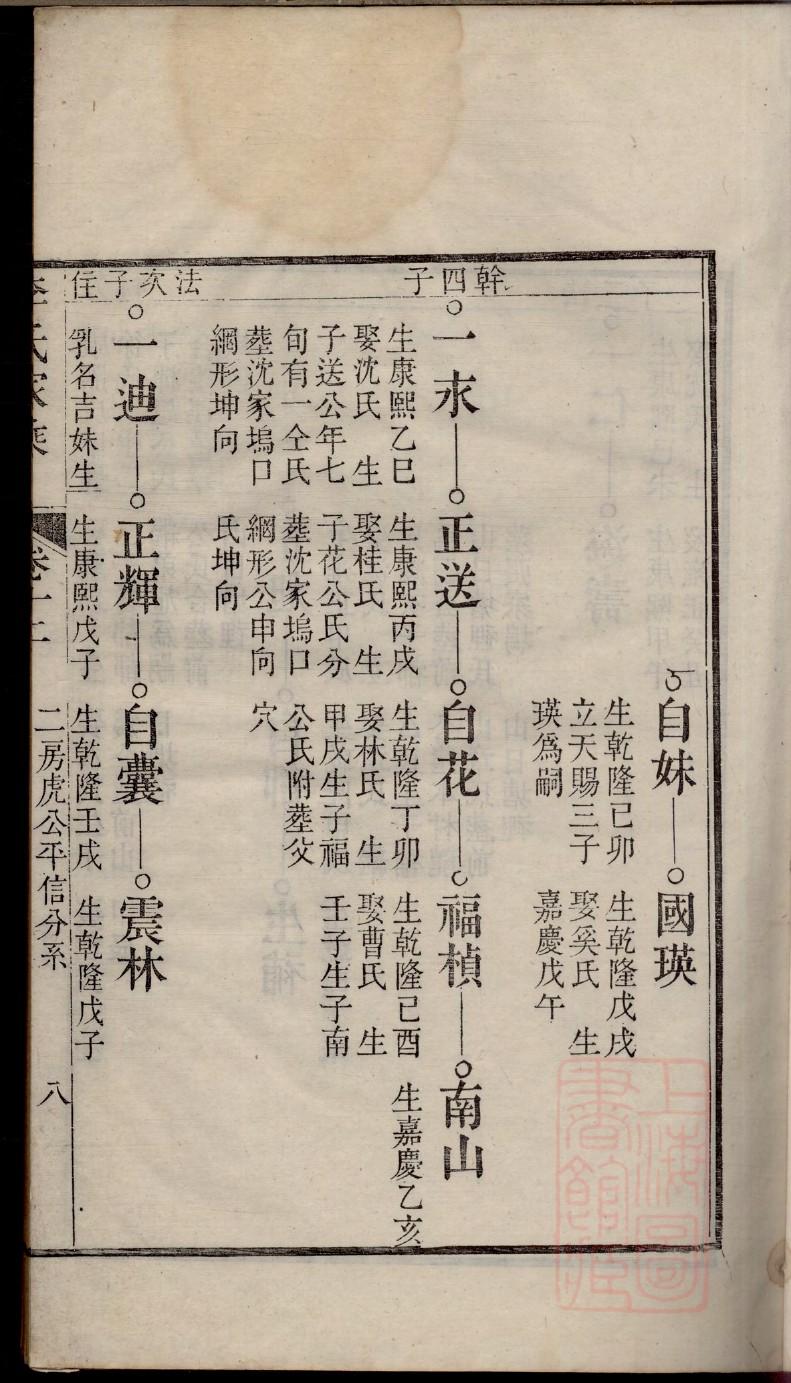 自妹
生乾隆己卯
立天賜三子
瑛爲嗣
國瑛
生乾隆戊戌
娶奚氏　生
嘉慶戊午
幹四子
一永
生康熙乙巳
娶沈氏　生
子送公年七
旬有一仝氏
塟沈家塢口
綱形坤向
正送
生康熙丙戌
娶桂氏　生
子花公氏分
塟沈家塢口
綱形公申向
氏坤向
自花
生乾隆丁卯
娶林氏　生
甲戌生子福
公氏附塟父
穴
福楨
生乾隆己酉
娶曹氏　生
壬子生子南
南山
生嘉慶乙亥
法次子住
一迪
乳名吉妹生
正輝
生康熙戊子
自囊
生乾隆壬戌
震林
生乾隆戊子
氏家乘
卷十二
二房虎公平信分系
八
上海圖
書館藏